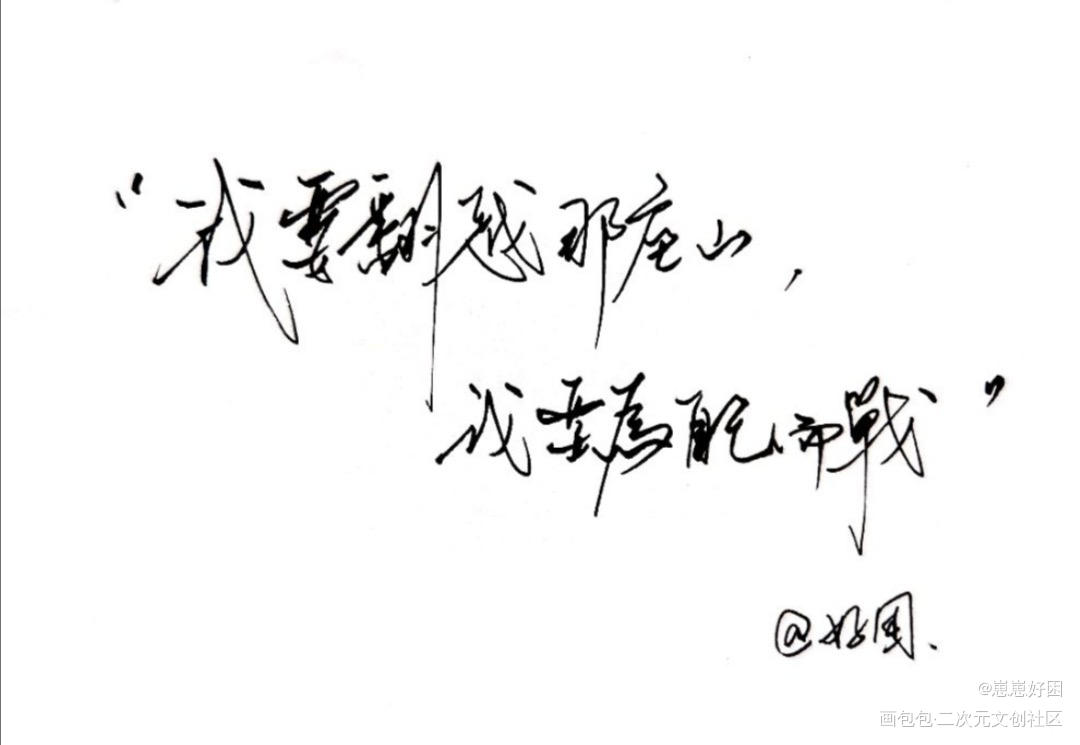 “我要翻越那座山，
我要為自己而戰”
@好困.
@崽崽好困
画包包·二次元文创社区